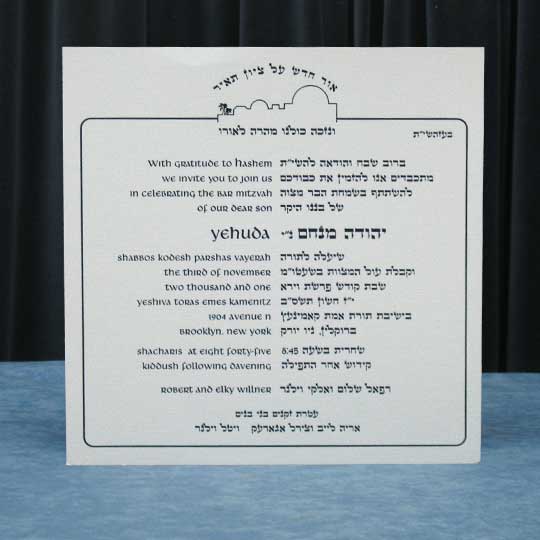 אור חדש על ציון תאיר
ונזכה כולנו מהרה לאורו
בעזהשי"ת
With gratitude to Hashem ברוב שבח והודאה להשי"ת
we invite you to join us מתכבדים אנו להזמין את כבודכם
in celebrating the Bar Mitzvah להשתתף בשמחת הבר מצוה
of our dear son של בננו היקר
Yehuda יהודה מנחם ני"
שיעלה לתורה
Shabbos Kodesh Parshas Vayerah וקבלת עול המצוות בשעטו"מ
the third of November שבת קודש פרשת וירא
two thousand and one י"ז חשון תשס"ב
Yeshiva Toras Emes Kamenitz בישיבת תורה אמת קאמיניץ
1904 Avenue N
Brooklyn, New York ברוקלין, ניו יורק
Shacharis at eight forty-five שחרית בשעה 8:45
Kiddush following davening קידוש אחר התפילה
Robert and Elky Willner רפאל שלום ואלקי וילנר
עטרת זקנים בני בנים
אריה לייב וצירל אגארעק ויטל וילנר